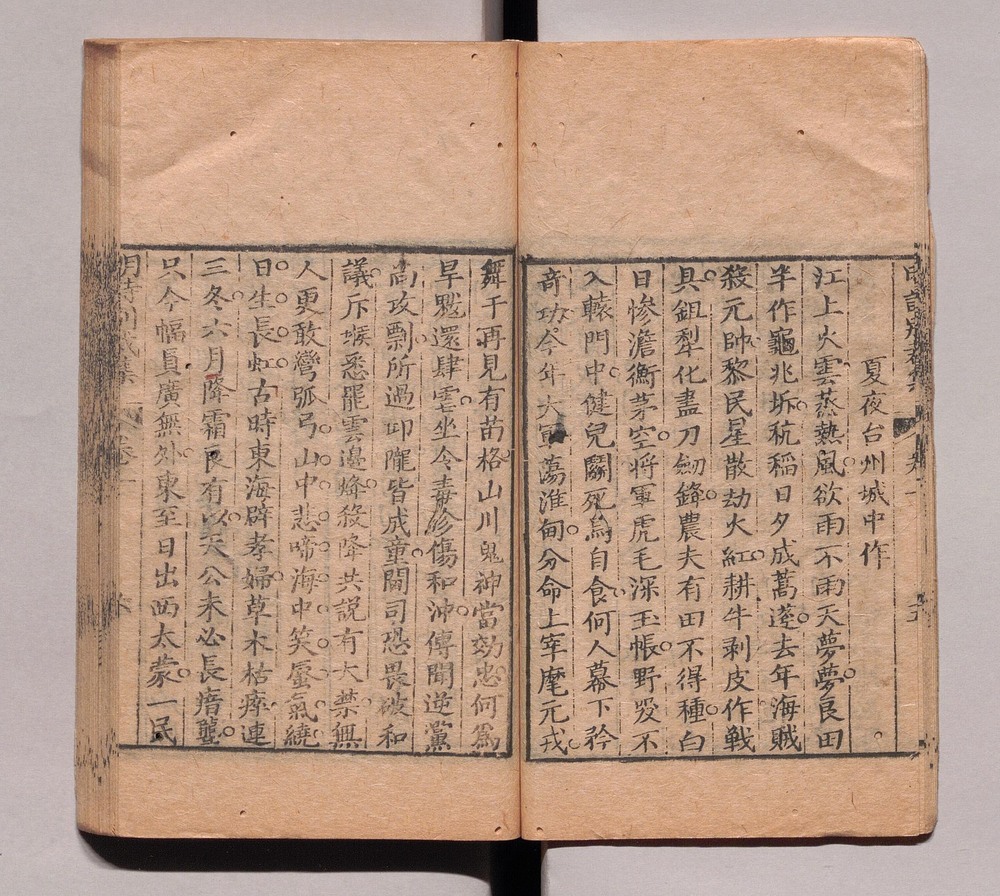 夏夜台州城中作
江上火雲蒸熱風欲雨不雨天夢夢良田
半作龜兆坼秔稻日夕成蒿蓬去年海賊
殺元帥黎民星散劫火紅耕牛剥皮作戰
具鉏犁化盡刀劒鋒農夫有田不得種白
日慘澹衡茅空将軍虎毛深玉帳野哭不
入轅門中健兒鬭死烏自食何人幕下矜
竒功今年大軍蕩淮甸分命上宰麾元戎
舞干再見有苗格山川鬼神當効忠何爲
旱魃還肆虐坐令毒沴傷和沖傳聞逆黨
尚攻剽所過卬隴皆成童閫司恐畏破和
議斥堠悉罷雲邊烽殺降共説有大禁無
人更敢彎弧弓山中悲啼海中笑蜃氣繞
日生長虹古時東海辟孝婦草木枯瘁連
三冬六月降霜良有以天公未必長瘖聾
只今幅員廣無外東至日出西太蒙一民